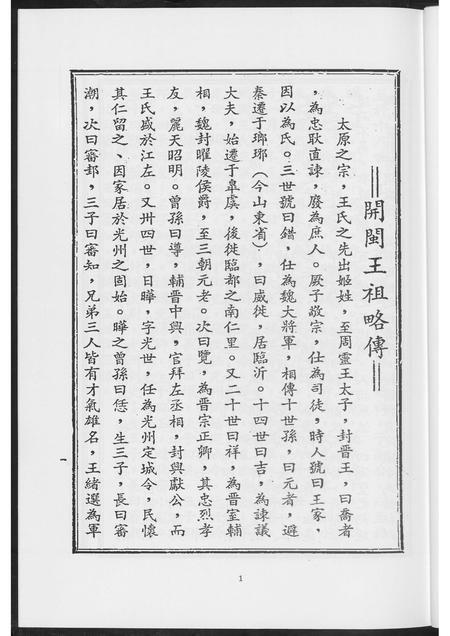 開閩王祖略傳
太原之宗，王氏之先出姬姓，至周靈王太子，封晉王，曰喬者
，為忠耿直諫，廢為庶人。厥子敬宗，仕為司徒，時人號曰王家，
因以為氏。三世號曰錯，仕為魏大將軍，相傳十世孫，曰元者，避
秦遷于瑯琊（今山東省），曰威徙，居臨沂。十四世曰吉，為諫議
大夫，始遷于皐虞，後徙臨都之南仁里。又二十世曰祥，為晉室輔
相，魏封睢陵侯爵，至三朝元老。次曰覽，為晉宗正卿，其忠烈孝
友，麗天昭明。曾孫曰導，輔晉中興，官拜左丞相，封興獻公，而
王氏盛於江左。又卅四世，曰曄，字光世，任為光州定城令，民懷
其仁留之、因家居於光州之固始。曄之曾孫曰恁，生三子，長曰審
潮，次曰審邽，三子曰審知，兄弟三人皆有才氣雄名，王緒選為軍
1